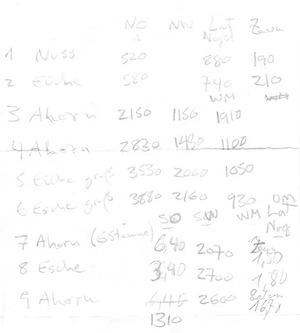 NO NW Lat Zaun
Nogst
1 Nuss 520 880 190
2 Esche 580 740 210
WM
3 Ahorn 2150 1150 1910
4 Ahorn 2830 1430 1100
5 Esche groß 3530 2060 1050
6 Esche groß 3880 2160 930 OM
SO SW WM Lat
7 Ahorn (6 Stämme) 6,40 2070 1,50
8 Esche 3,40 2700 1,80
9 Ahorn 2600 1670
1310